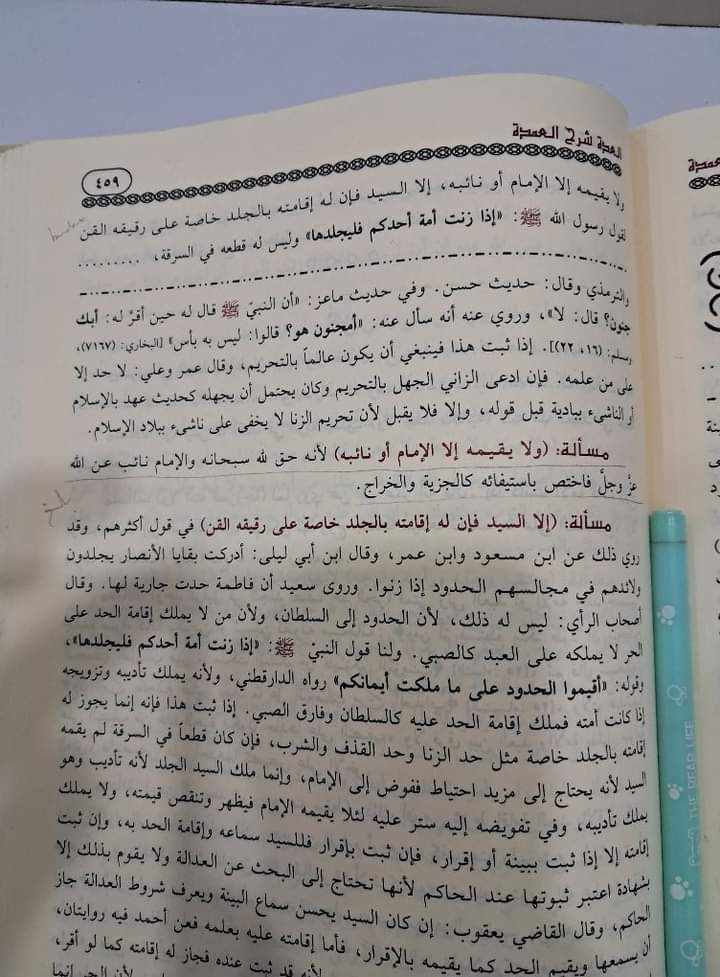 العدة شرح العمدة
٤٥٩
ولا يقيمه إلا الإمام أو نائبه، إلا السيد فإن له إقامته بالجلد خاصة على رقيقه القن
لقول رسول الله ﷺ: «إذا زنت أمة أحدكم فليجلدها» وليس له قطعه في السرقة، .........
والترمذي وقال: حديث حسن. وفي حديث ماعز: «أن النبيّ ﷺ قال له حين أقرّ له: أبك
جنون؟ قال: لا»، وروي عنه أنه سأل عنه: «أمجنون هو؟ قالوا: ليس به بأس» [البخاري: (٧١٦٧)،
ومسلم: (١٦، ٢٢)]. إذا ثبت هذا فينبغي أن يكون عالماً بالتحريم، وقال عمر وعلي: لا حد إلا
على من علمه. فإن ادعى الزاني الجهل بالتحريم وكان يحتمل أن يجهله كحديث عهد بالإسلام
أو الناشىء ببادية قبل قوله، وإلا فلا يقبل لأن تحريم الزنا لا يخفى على ناشىء ببلاد الإسلام.
مسألة: (ولا يقيمه إلا الإمام أو نائبه) لأنه حق لله سبحانه والإمام نائب عن الله
عزّ وجلّ فاختص باستيفائه كالجزية والخراج.
مسألة: (إلا السيد فإن له إقامته بالجلد خاصة على رقيقه القن) في قول أكثرهم، وقد
روي ذلك عن ابن مسعود وابن عمر، وقال ابن أبي ليلى: أدركت بقايا الأنصار يجلدون
ولائدهم في مجالسهم الحدود إذا زنوا. وروى سعيد أن فاطمة حدت جارية لها. وقال
أصحاب الرأي: ليس له ذلك، لأن الحدود إلى السلطان، ولأن من لا يملك إقامة الحد على
الحر لا يملكه على العبد كالصبي. ولنا قول النبيّ ﷺ: «إذا زنت أمة أحدكم فليجلدها»،
وقوله: «أقيموا الحدود على ما ملكت أيمانكم» رواه الدارقطني، ولأنه يملك تأديبه وتزويجه
إذا كانت أمته فملك إقامة الحد عليه كالسلطان وفارق الصبي. إذا ثبت هذا فإنه إنما يجوز له
إقامته بالجلد خاصة مثل حد الزنا وحد القذف والشرب، فإن كان قطعاً في السرقة لم يقمه
السيد لأنه يحتاج إلى مزيد احتياط ففوض إلى الإمام، وإنما ملك السيد الجلد لأنه تأديب وهو
يملك تأديبه، وفي تفويضه إليه ستر عليه لئلا يقيمه الإمام فيظهر وتنقص قيمته، ولا يملك
إقامته إلا إذا ثبت ببينة أو إقرار، فإن ثبت بإقرار فللسيد سماعه وإقامة الحد به، وإن ثبت
بشهادة اعتبر ثبوتها عند الحاكم لأنها تحتاج إلى البحث عن العدالة ولا يقوم بذلك إلا
الحاكم، وقال القاضي يعقوب: إن كان السيد يحسن سماع البينة ويعرف شروط العدالة جاز
أن يسمعها ويقيم الحد كما يقيمه بالإقرار، فأما إقامته عليه بعلمه فعن أحمد فيه روايتان،
لأنه قد ثبت عنده فجاز له إقامته كما لو أقر،
لأن الحر إنما
THE BEAR LIFE